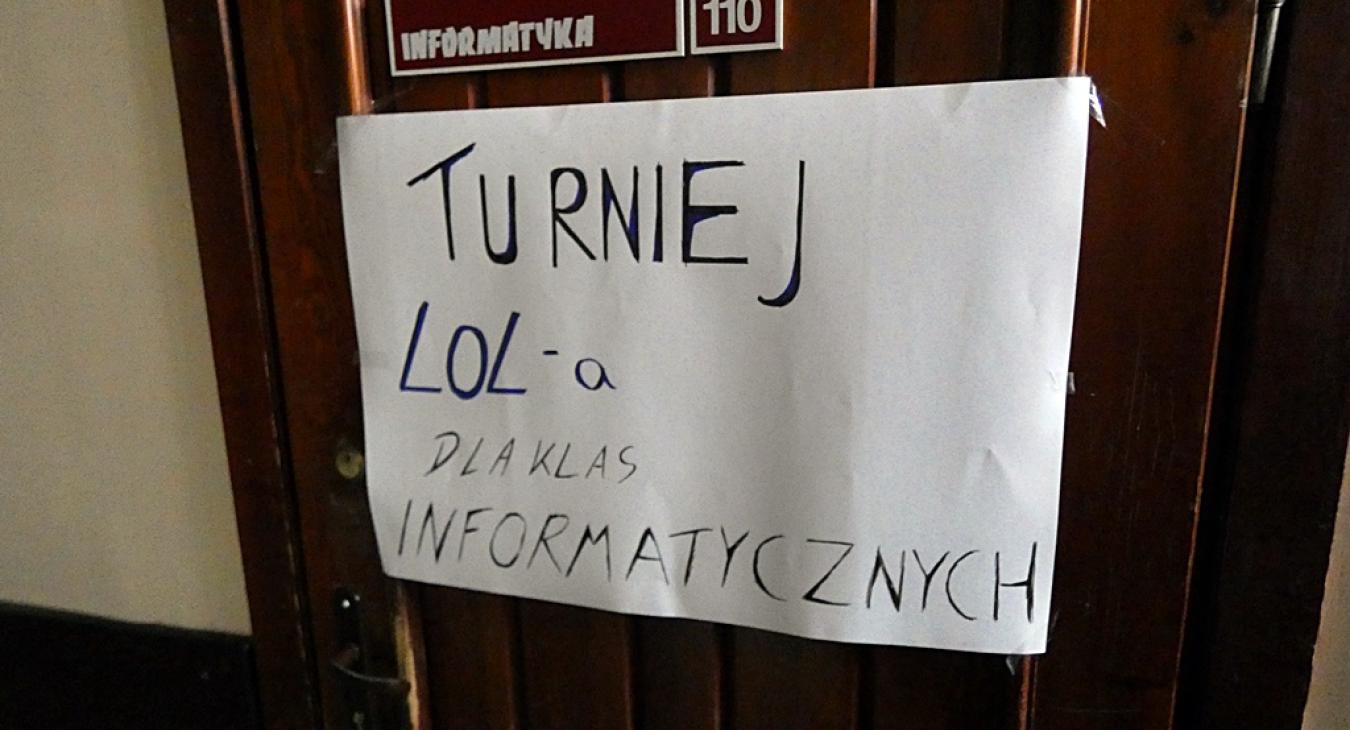 INFORMATYKA
110
TURNIEJ
LOL-a
DLA KLAS
INFORMATYCZNYCH